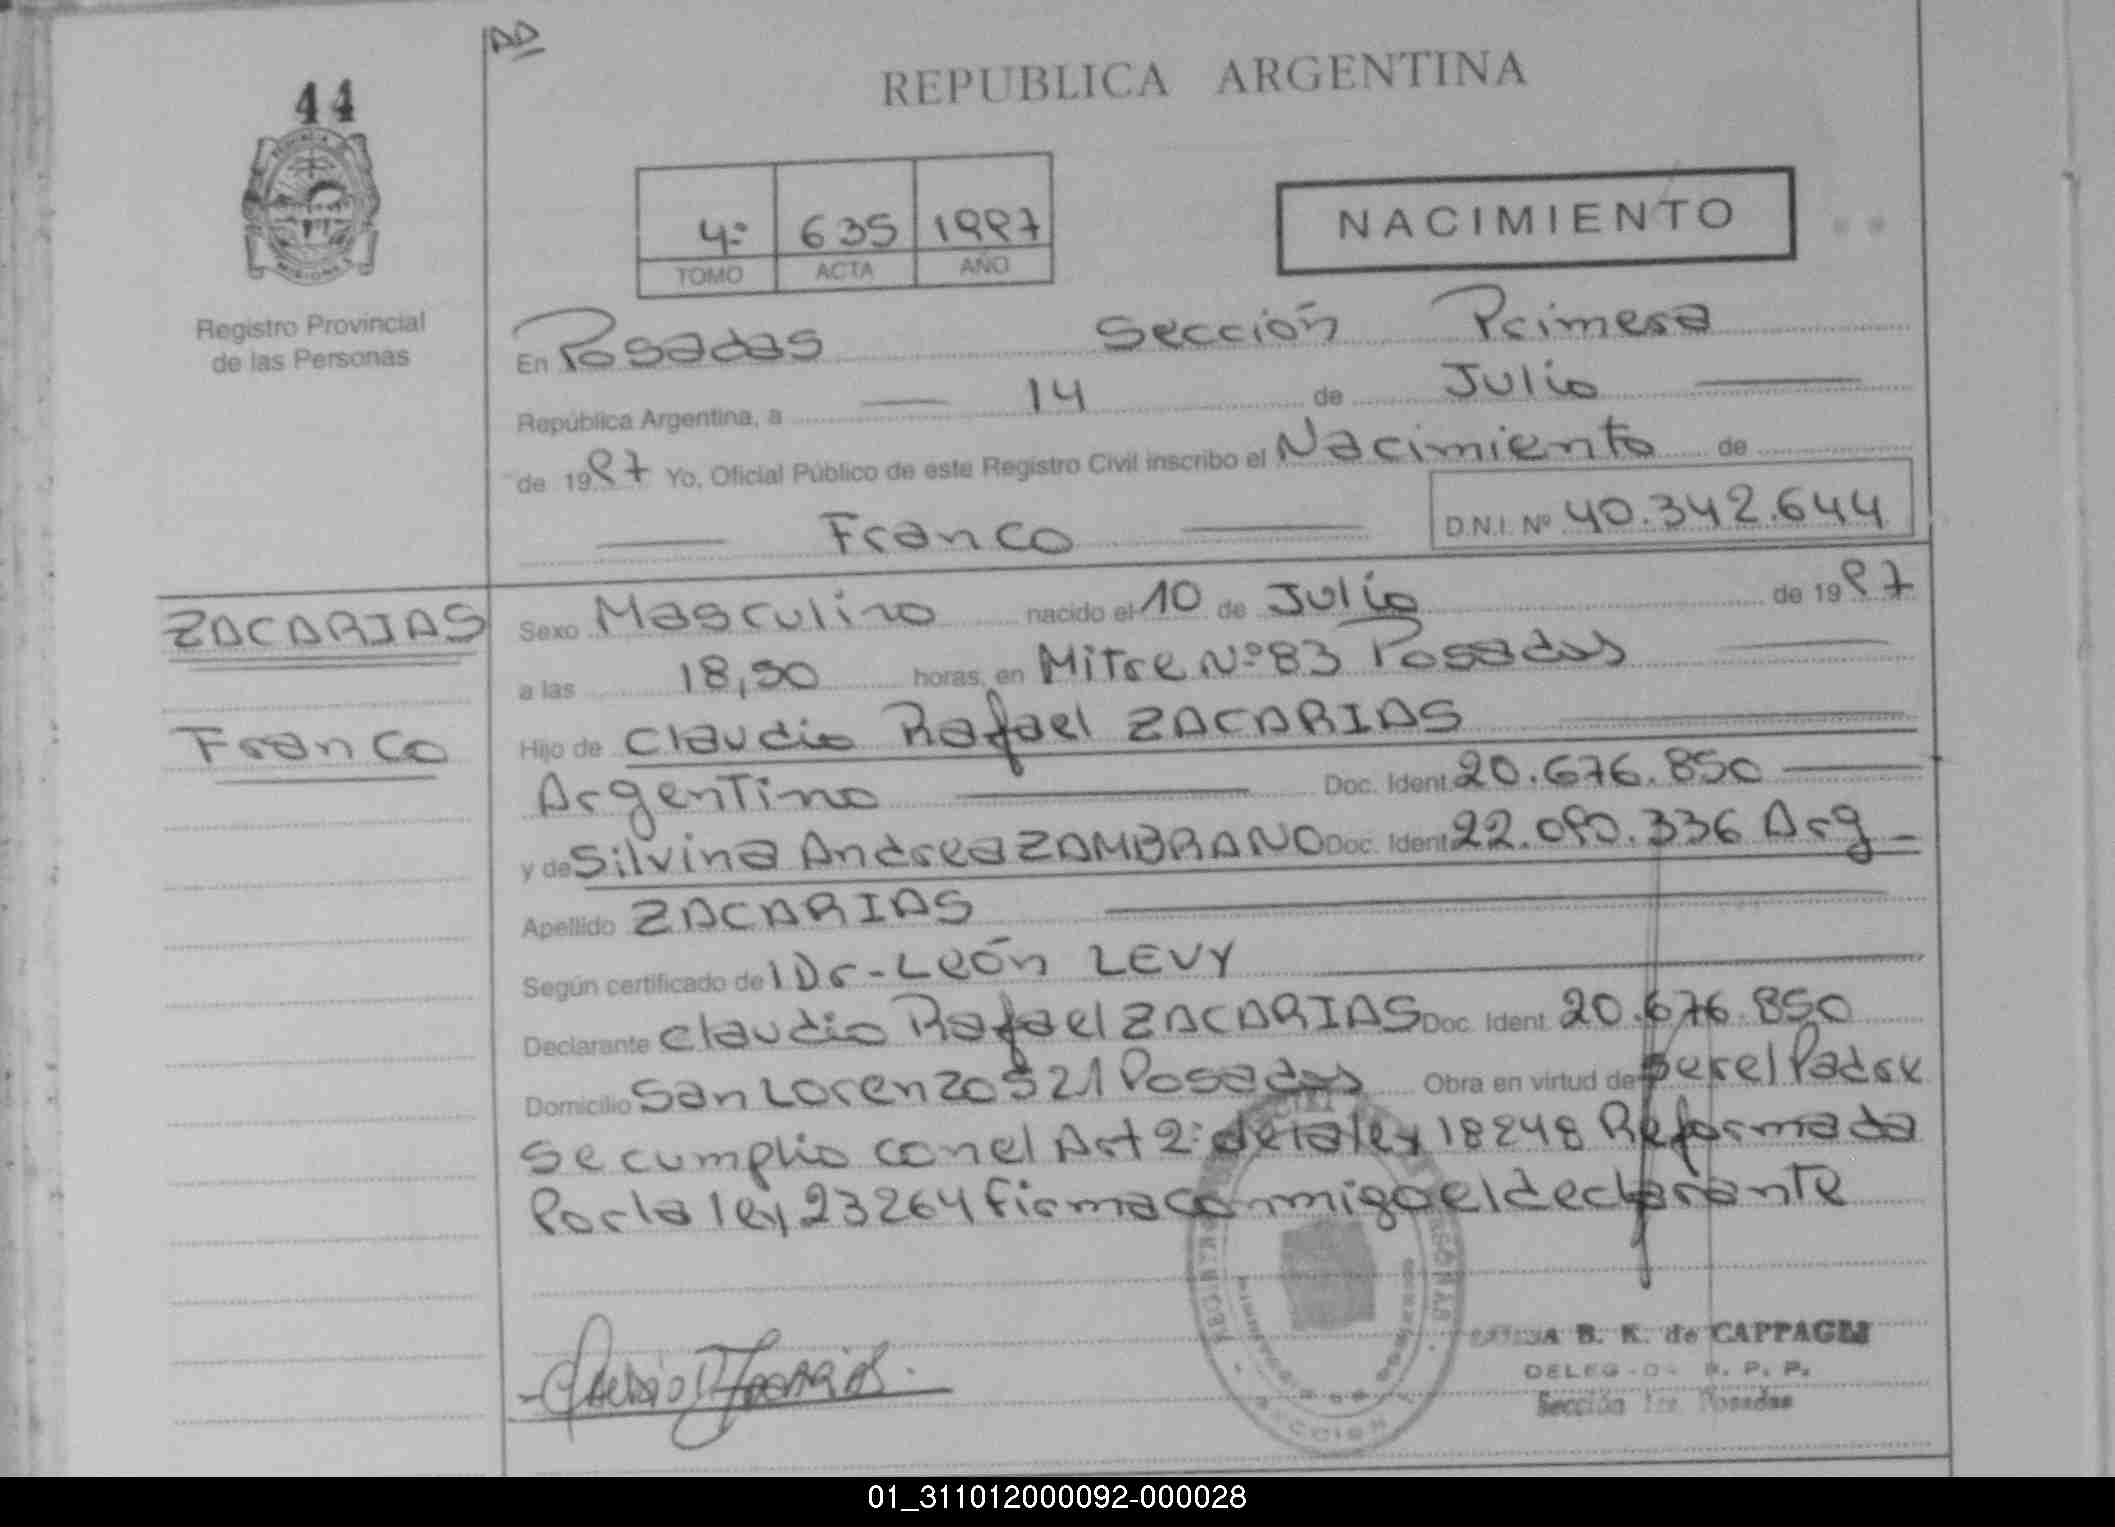 AD
44
REPUBLICA ARGENTINA
4º 635 1997
TOMO ACTA AÑO
NACIMIENTO
Registro Provincial
de las Personas
En Posadas Sección Primera
República Argentina, a 14 de Julio
de 1997 Yo, Oficial Público de este Registro Civil inscribo el Nacimiento de
Franco D.N.I. Nº 40.342.644
ZACARIAS
Franco
Sexo Masculino nacido el 10 de Julio de 1997
a las horas, en Mitre Nº 83 Posadas
Hijo de Claudio Rafael ZACARIAS
Argentino Doc. Ident. 20.676.850
y de Silvina Andrea ZAMBRANO Doc. Ident. 22.090.336 Arg
Apellido ZACARIAS
Según certificado de l Dr. León LEVY
Declarante Claudio Rafael ZACARIAS Doc. Ident. 20.676.850
Domicilio San Lorenzo Posadas Obra en virtud de ser el Padre
Se cumplio con el Art 2: de la ley 18248 Reformada
Por la ley 23264 firma conmigo el declarante
B. K. de CAPPAGLI
R. P. P.
Sección 1ra. Posadas
01_311012000092-000028